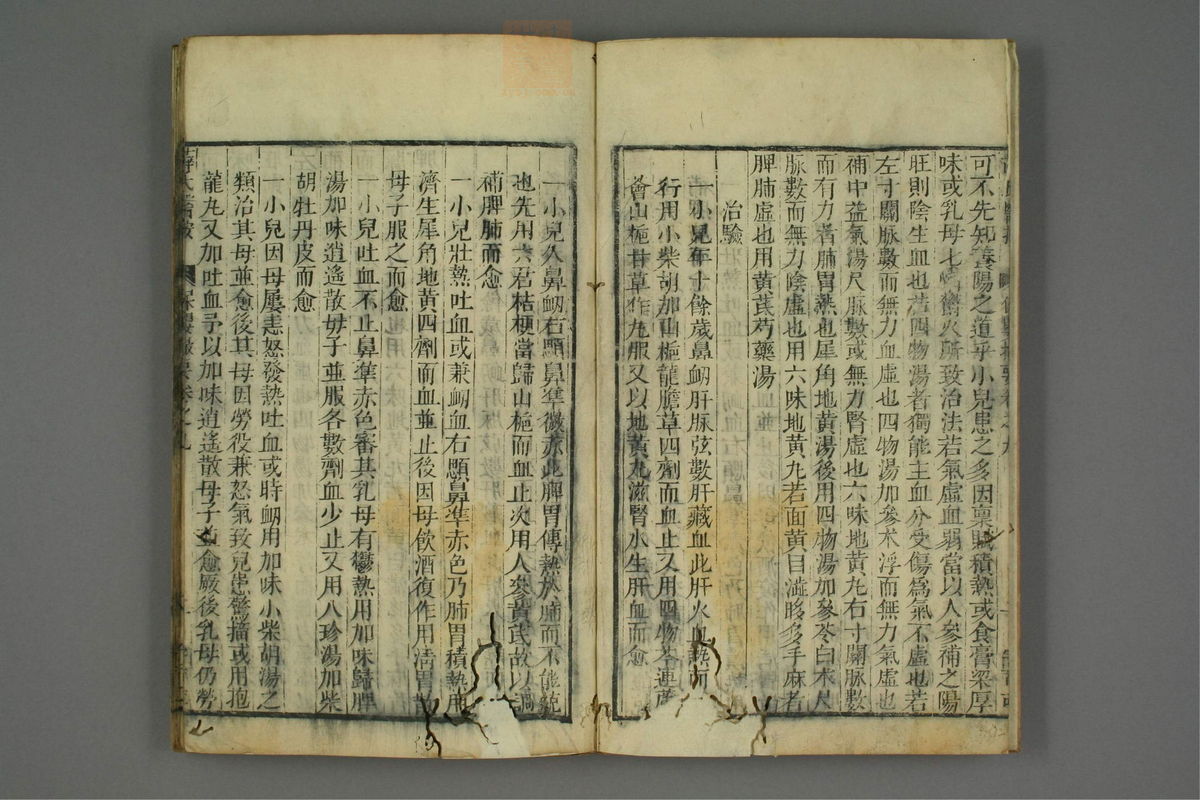 可不先知養陽之道乎小兒患之多因禀賦積熱或食膏粱厚
味或乳母七情鬱火所致治法若氣虛血弱當以人參補之陽
旺則陰生血也若四物湯者獨能主血分受傷爲氣不虛也若
左寸關脉數而無力血虛也四物湯加參术浮而無力氣虛也
補中益氣湯尺脉數或無力腎虛也六味地黄丸右寸關脉數
而有力者肺胃熱也犀角地黄湯後用四物湯加參苓白术尺
脉數而無力陰虛也用六味地黄丸若面黄目澁眵多手麻者
脾肺虛也用黄芪芍藥湯
治驗
一小兒年十餘歲鼻衂肝脉弦數肝藏血此肝火血熱而
行用小柴胡加山梔龍膽草四劑而血止又用四物芩連蘆
薈山梔甘草作丸服又以地黄丸滋腎水生肝血而愈
一小兒久鼻衂右顋鼻凖微赤此脾胃傳熱於肺而不能統
也先用六君桔梗當歸山梔而血止次用人參黄芪故以調
補脾肺而愈
一小兒壯熱吐血或兼衂血右顋鼻凖赤色乃肺胃積熱用
濟生犀角地黄四劑而血並止後因母飲酒復作用清胃散
母子服之而愈
一小兒吐血不止鼻凖赤色審其乳母有鬱熱用加味歸脾
湯加味逍遙散母子並服各數劑血少止又用八珍湯加柴
胡牡丹皮而愈
一小兒因母屢恚怒發熱吐血或時衂用加味小柴胡湯之
類治其母並愈後其母因勞役兼怒氣致兒患驚搐或用抱
龍丸又加吐血予以加味逍遙散母子並愈厥後乳母仍勞